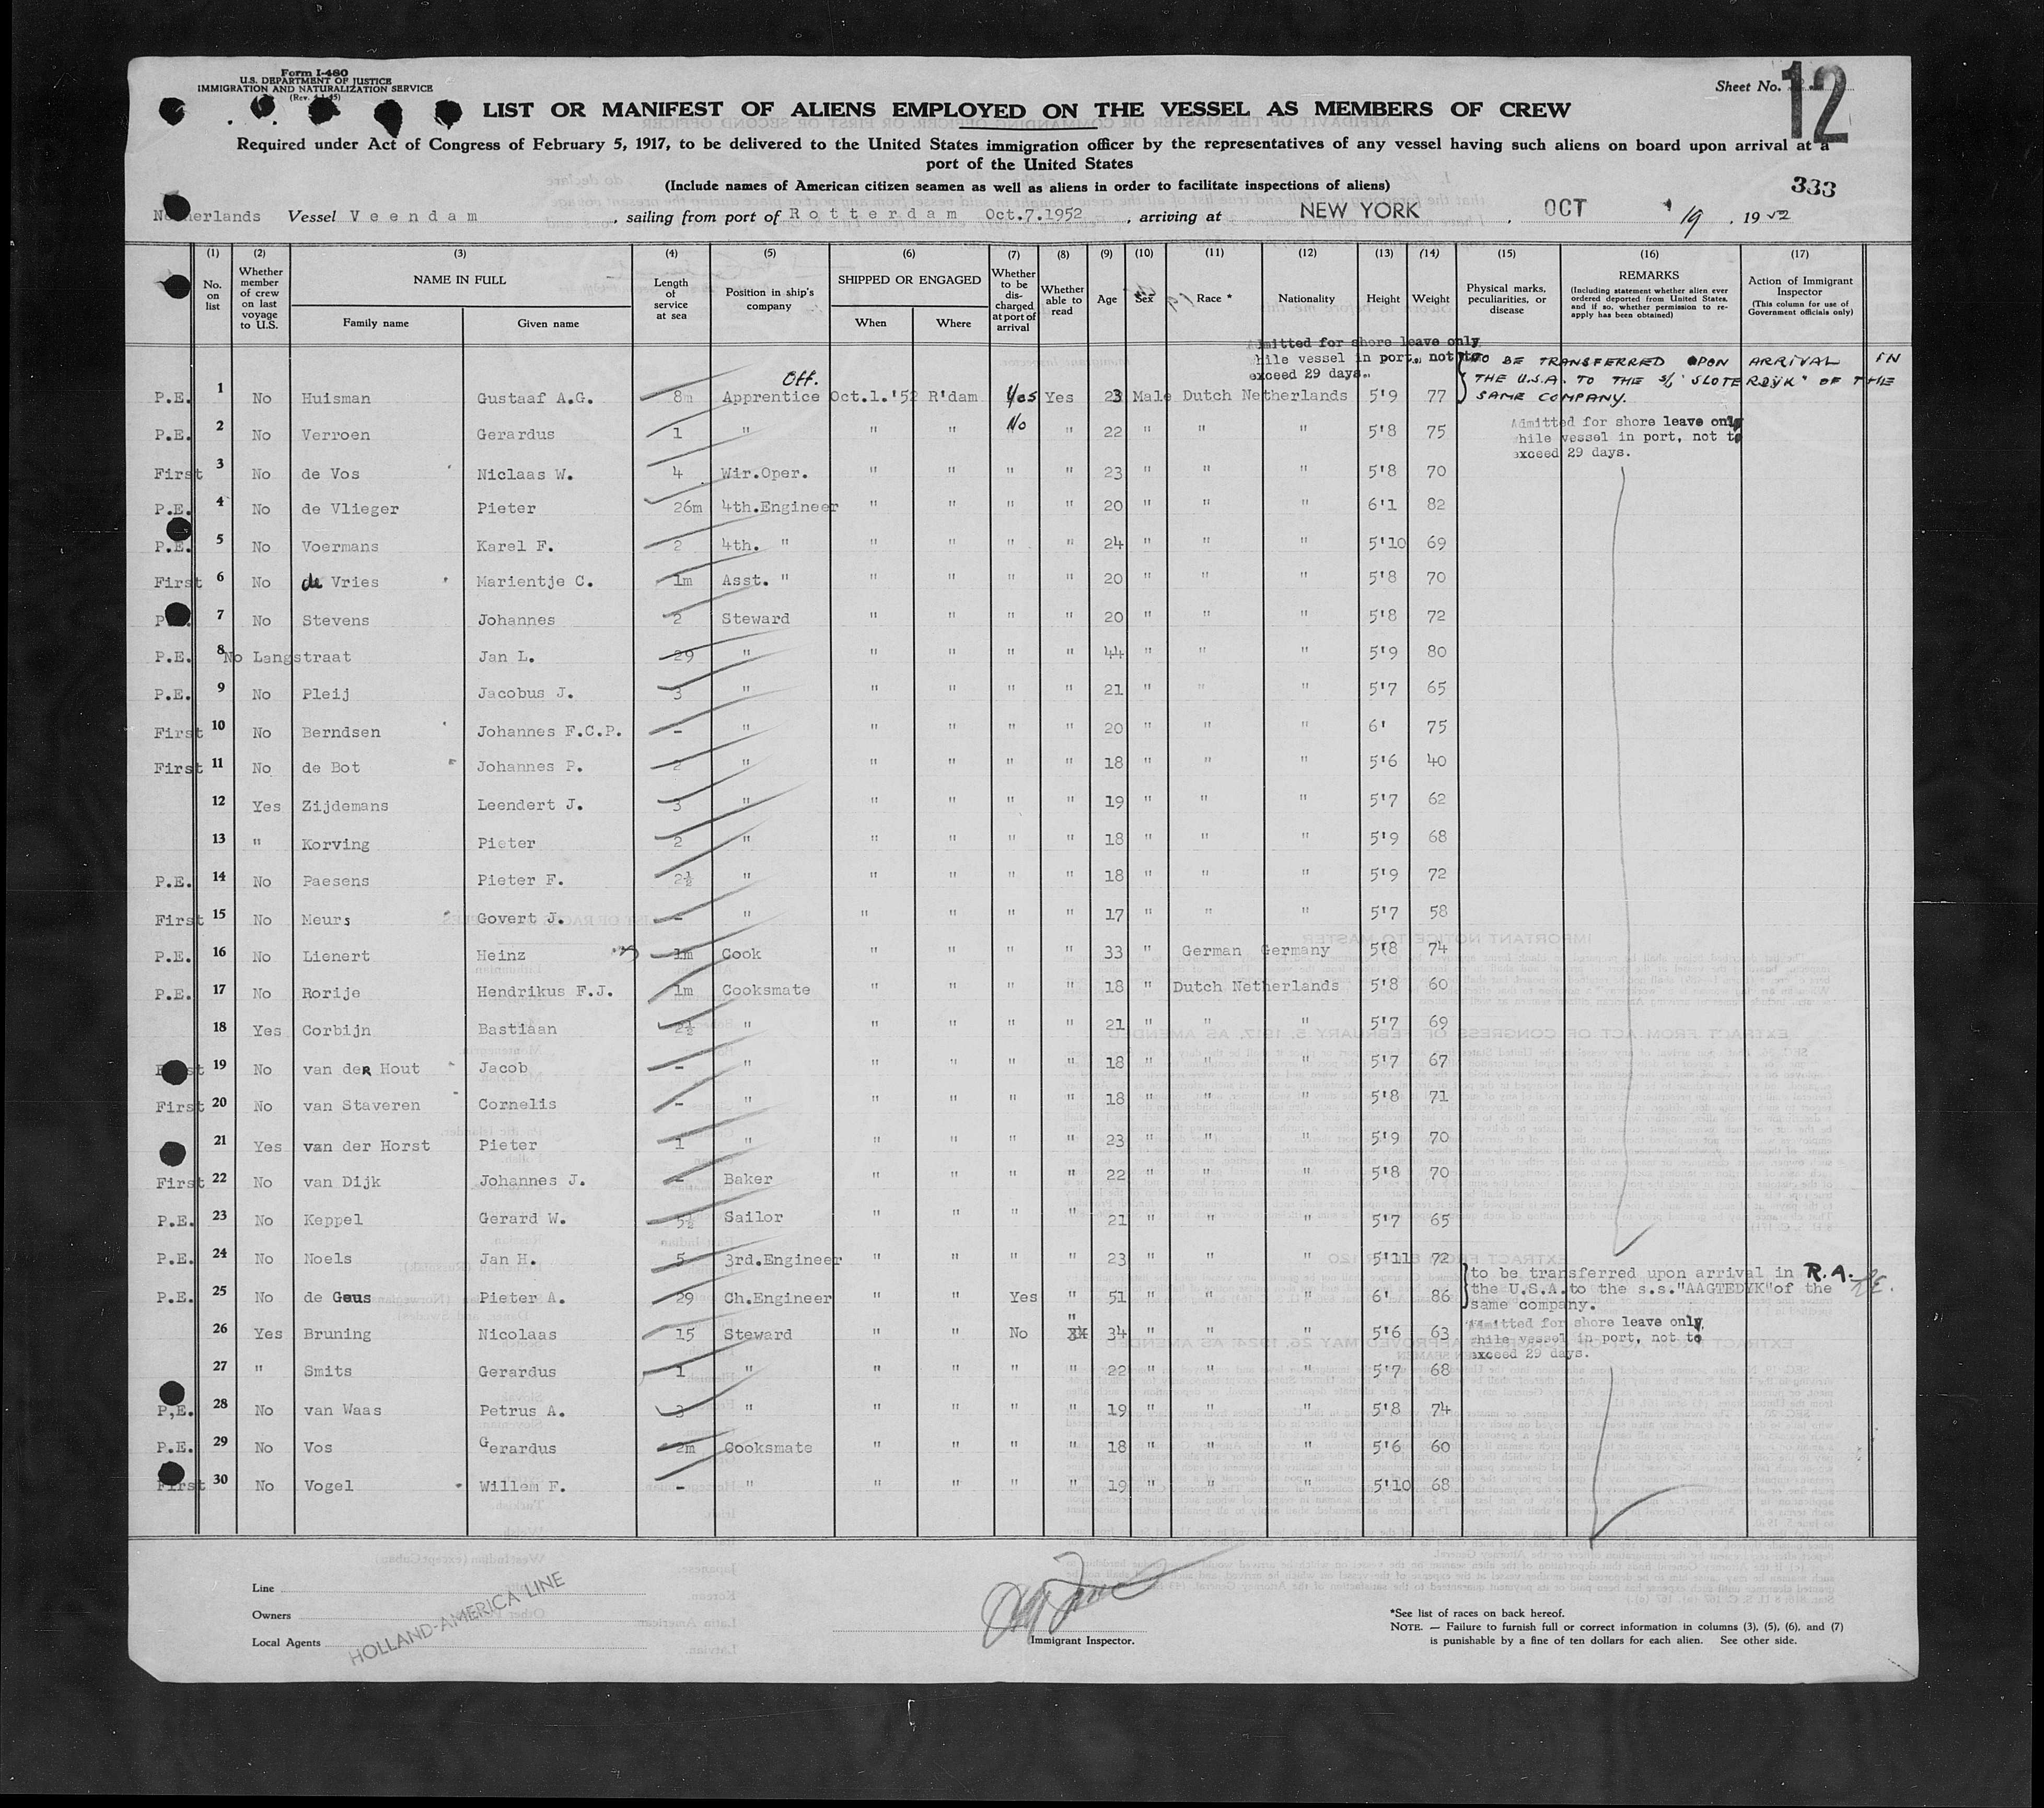 Form I-460
U.S. DEPARTMENT OF JUSTICE
IMMIGRATION AND NATURALIZATION SERVICE
Sheet No. 12
LIST OR MANIFEST OF ALIENS EMPLOYED ON THE VESSEL AS MEMBERS OF CREW
Required under Act of Congress of February 5, 1917, to be delivered to the United States immigration officer by the representatives of any vessel having such aliens on board upon arrival at a
port of the United States
(Include names of American citizen seamen as well as aliens in order to facilitate inspections of aliens)
333
Vessel Veendam, sailing from port of Rotterdam Oct.7.1952, arriving at NEW YORK, OCT 19, 1952
(1) (2) (3) (4) (5) (6) (7) (8) (9) (10) (11) (12) (13) (14) (15) (16) (17)
No. on list
Whether member of crew on last voyage to U.S.
NAME IN FULL
Family name
Given name
Length of service at sea
Position in ship's company
SHIPPED OR ENGAGED
When
Where
Whether to be discharged at port of arrival
Whether able to read
Age
Sex
Race *
Nationality
Height
Weight
Physical marks, peculiarities, or disease
REMARKS
(Including statement whether alien ever ordered deported from United States, and if so, whether permission to re-apply has been obtained)
Action of Immigrant Inspector
(This column for use of Government officials only)
Admitted for shore leave only
while vessel in port, not to
exceed 29 days.
TO BE TRANSFERRED UPON ARRIVAL IN
THE U.S.A. TO THE S/S "SLOTERDYK" OF THE
SAME COMPANY.
Off.
P.E. 1 No Huisman Gustaaf A.G. 8m Apprentice Oct.1.'52 R'dam Yes Yes 23 Male Dutch Netherlands 5'9 77
P.E. 2 No Verroen Gerardus 1 " " " No " 22 " " " 5'8 75
Admitted for shore leave only
while vessel in port, not to
exceed 29 days.
First 3 No de Vos Niclaas W. 4 Wir.Oper. " " " " 23 " " " 5'8 70
P.E. 4 No de Vlieger Pieter 26m 4th.Engineer " " " " 20 " " " 6'1 82
P.E. 5 No Voermans Karel F. 2 4th. " " " " " 24 " " " 5'10 69
First 6 No de Vries Marientje C. 1m Asst. " " " " " 20 " " " 5'8 70
7 No Stevens Johannes 2 Steward " " " " 20 " " " 5'8 72
P.E. 8 No Langstraat Jan L. 29 " " " " " 44 " " " 5'9 80
P.E. 9 No Pleij Jacobus J. 3 " " " " " 21 " " " 5'7 65
First 10 No Berndsen Johannes F.C.P. - " " " " " 20 " " " 6' 75
First 11 No de Bot Johannes P. 2 " " " " " 18 " " " 5'6 40
12 Yes Zijdemans Leendert J. 3 " " " " " 19 " " " 5'7 62
13 " Korving Pieter 2 " " " " " 18 " " " 5'9 68
P.E. 14 No Paesens Pieter F. 2½ " " " " " 18 " " " 5'9 72
First 15 No Meurs Govert J. - " " " " " 17 " " " 5'7 58
P.E. 16 No Lienert Heinz 1m Cook " " " " 33 " German Germany 5'8 74
P.E. 17 No Rorije Hendrikus F.J. 1m Cooksmate " " " " 18 " Dutch Netherlands 5'8 60
18 Yes Corbijn Bastiaan 2½ " " " " " 21 " " " 5'7 69
First 19 No van deR Hout Jacob - " " " " " 18 " " " 5'7 67
First 20 No van Staveren Cornelis - " " " " " 18 " " " 5'8 71
21 Yes van der Horst Pieter 1 " " " " " 23 " " " 5'9 70
First 22 No van Dijk Johannes J. - Baker " " " " 22 " " " 5'8 70
P.E. 23 No Keppel Gerard W. 5½ Sailor " " " " 21 " " " 5'7 65
P.E. 24 No Noels Jan H. 5 3rd.Engineer " " " " 23 " " " 5'11 72
to be transferred upon arrival in R.A.
the U.S.A. to the s.s."AAGTEDYK" of the
same company.
P.E. 25 No de Geus Pieter A. 29 Ch.Engineer " " Yes " 51 " " " 6' 86
26 Yes Bruning Nicolaas 15 Steward " " No " 34 " " " 5'6 63
Admitted for shore leave only
while vessel in port, not to
exceed 29 days.
27 " Smits Gerardus 1 " " " " " 22 " " " 5'7 68
P,E. 28 No van Waas Petrus A. 3 " " " " " 19 " " " 5'8 74
P.E. 29 No Vos Gerardus 2m Cooksmate " " " " 18 " " " 5'6 60
First 30 No Vogel Willem F. - " " " " " 19 " " " 5'10 68
Line
Owners
Local Agents
HOLLAND-AMERICA LINE
Immigrant Inspector.
*See list of races on back hereof.
NOTE. — Failure to furnish full or correct information in columns (3), (5), (6), and (7)
is punishable by a fine of ten dollars for each alien. See other side.